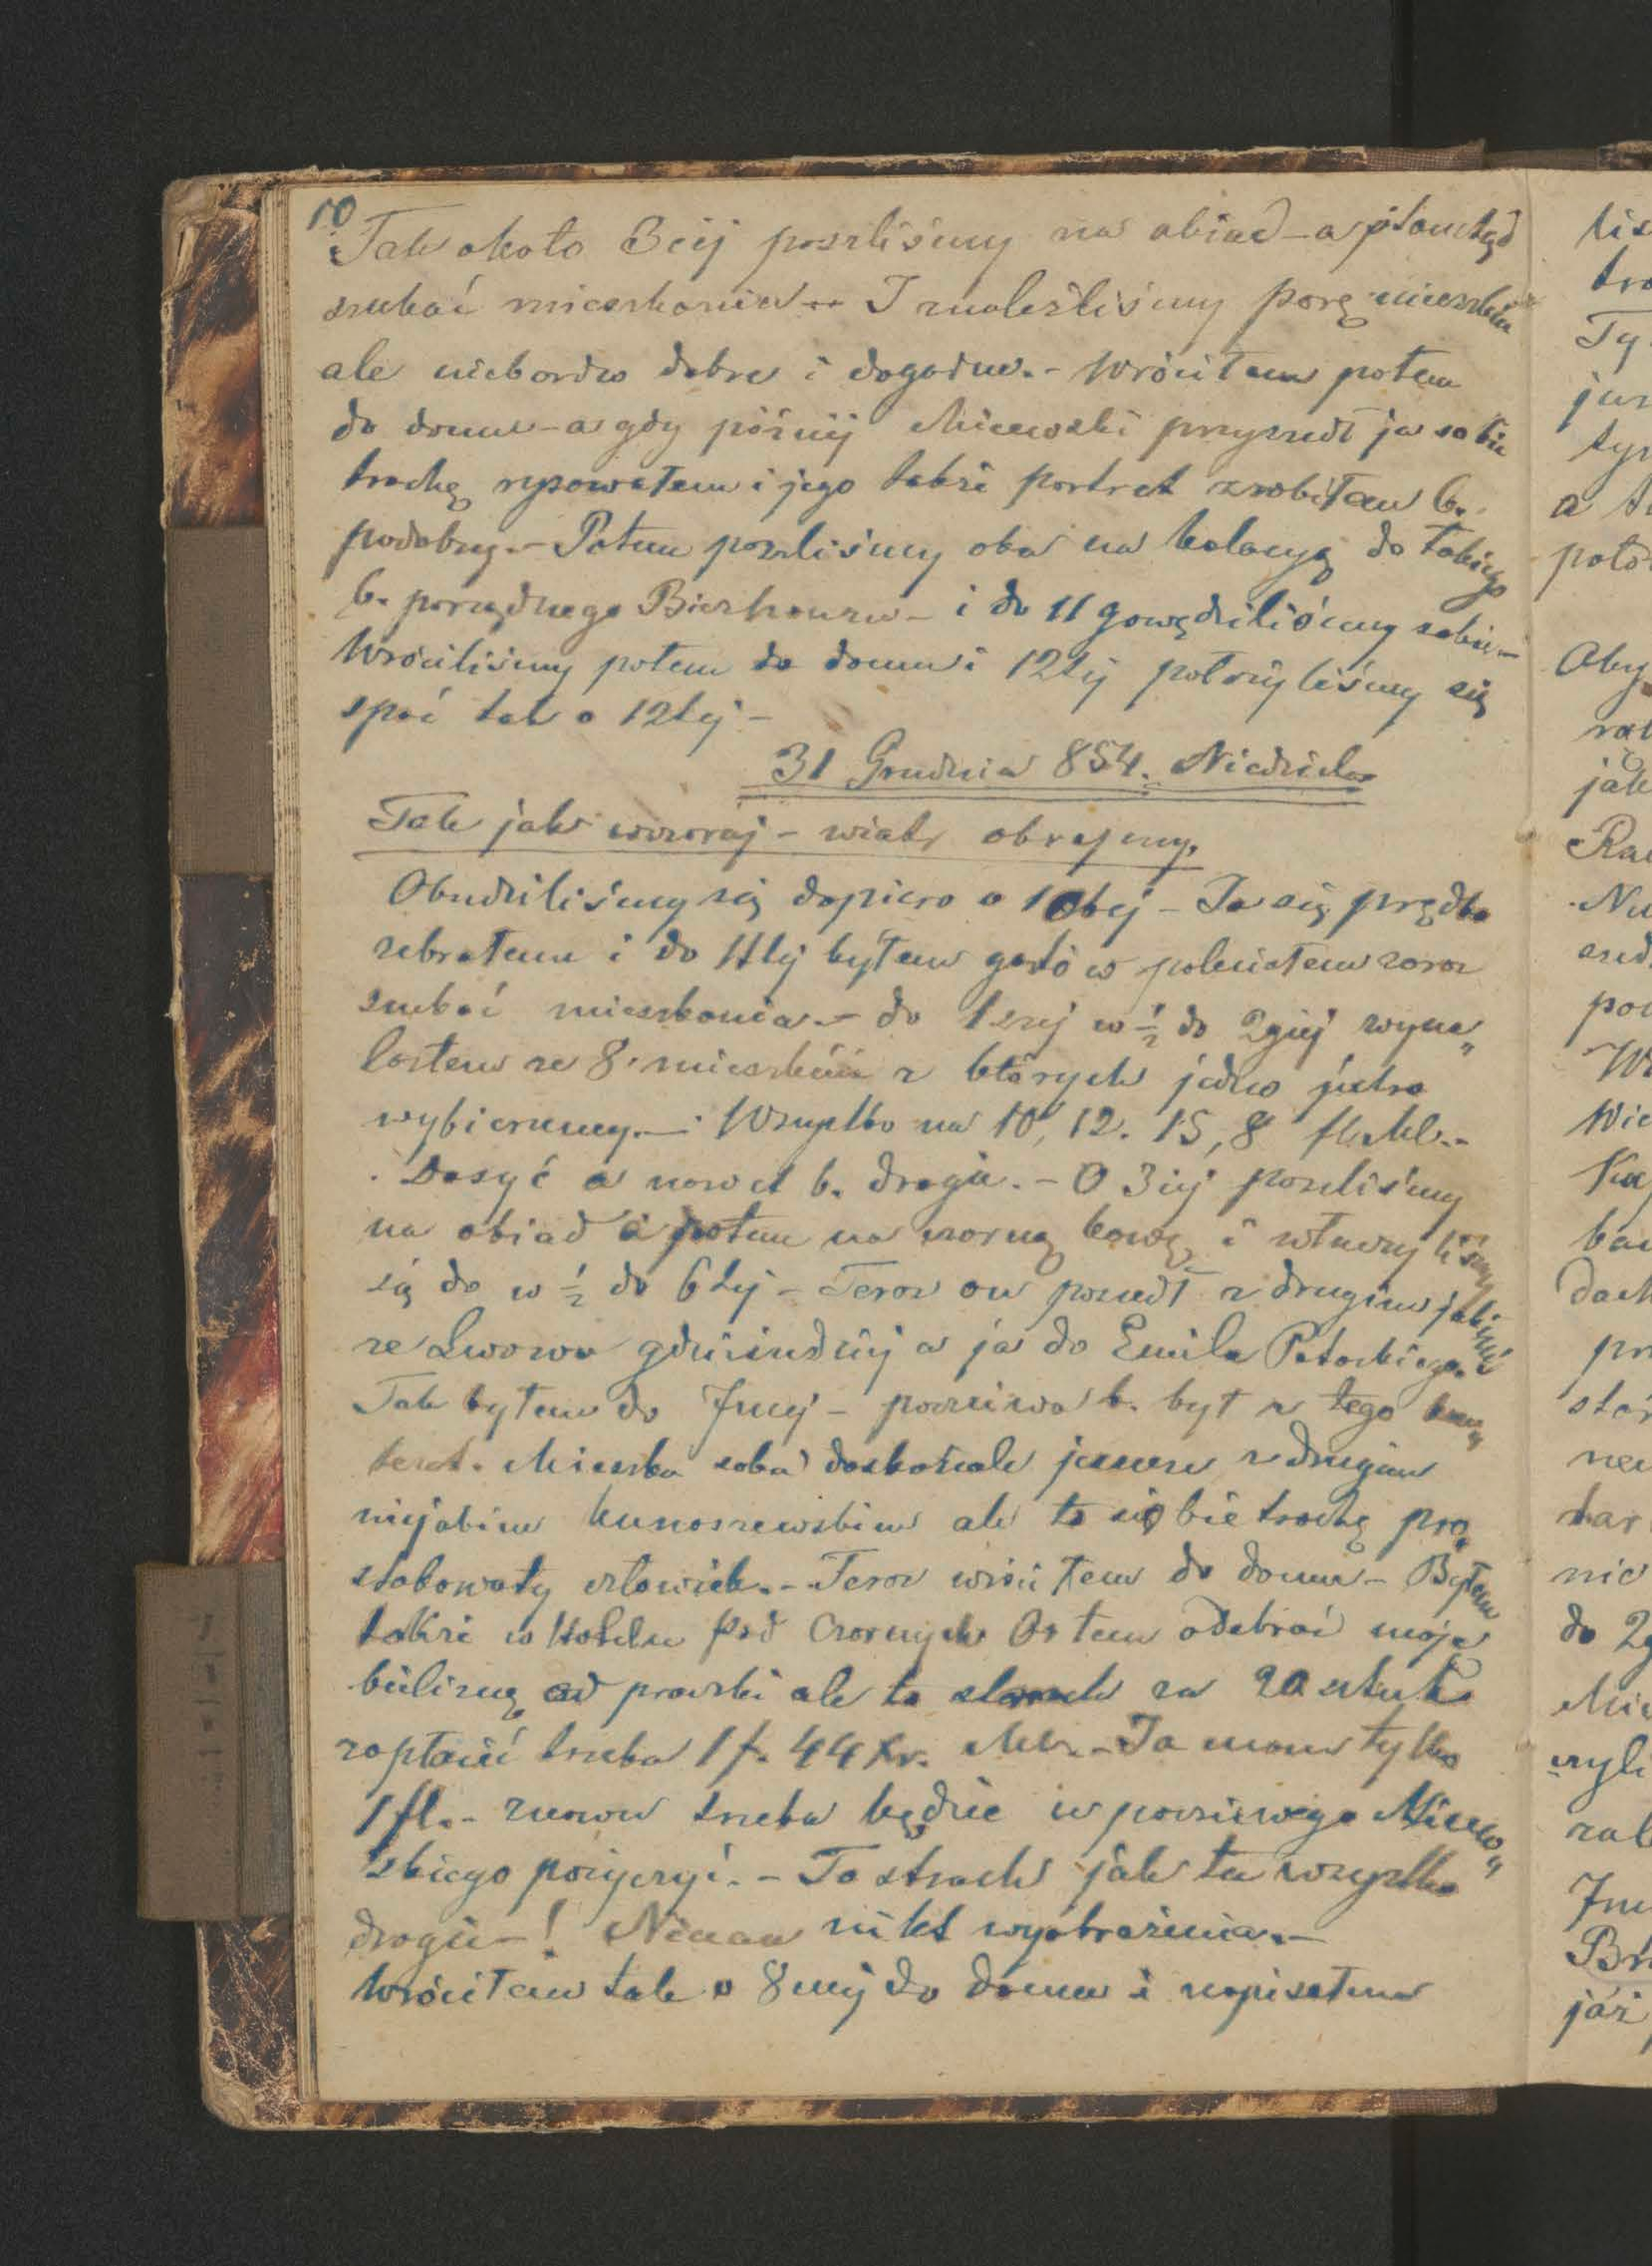 10
Tak około 3ciej poszliśmy na obiad – a potem
szukać mieszkania – I znaleźliśmy parę mieszkań
ale niebardzo dobre i dogodne. – Wróciłem potem
do domu – a gdy późnij Micewski przyszedł ja sobie
trochę rysowałem i jego także portret zrobiłem b.
podobny. – Potem poszliśmy oba na kolacyą do takiego
b. porządnego Bierhauzu – i do 11 gawędziliśmy sobie –
Wróciliśmy potem do domu i 12tej położyliśmy się
spać tak o 12tej –
31 Grudnia 854. Niedziela
Tak jak wczoraj – wiatr obrzymy.
Obudziliśmy się dopiero o 10tej – Ja się prędko
zebrałem i do 11tej byłem gotów poleciałem zaraz
szukać mieszkania. – do 1szej w ½ do 2giej wyna„
lazłem ze 8 mieszkań z których jedno jutro
wybierzemy. – Wszystko na 10, 12. 15, 8 fl. Mk. –
Dosyć a nawet b. drogie. – O 3ciej poszliśmy
na obiad a potem na czarną kawę i
się do w ½ do 6tej – Teraz on poszedł z drugim jakimś
ze Lwowa gdzieindziej a ja do Emila Potockiego.
Tak byłem do 7mej – poczciwa b. był z tego kon„
tent. Mieszka soba doskonale jeszcze z drugim
niejakim Kunaszewskim ale to sobie trochę pro„
stakowaty człowiek. – Teraz wróciłem do domu – Byłem
także w Hotelu pod Czarnym Orłem odebrać moje
bieliznę od praczki ale to strach za 20 sztuk
zapłacić trzeba 1 f. 44 kr. Mk. – Ja mam tylko
1 fl. – znowu trzeba będzie u poczciwego Micew„
skiego pożyczyć. – To strach jak tu wszystko
drogie – ! Niema nikt wyobrażenia. –
Wróciłem tak o 8mej do domu i napisałem